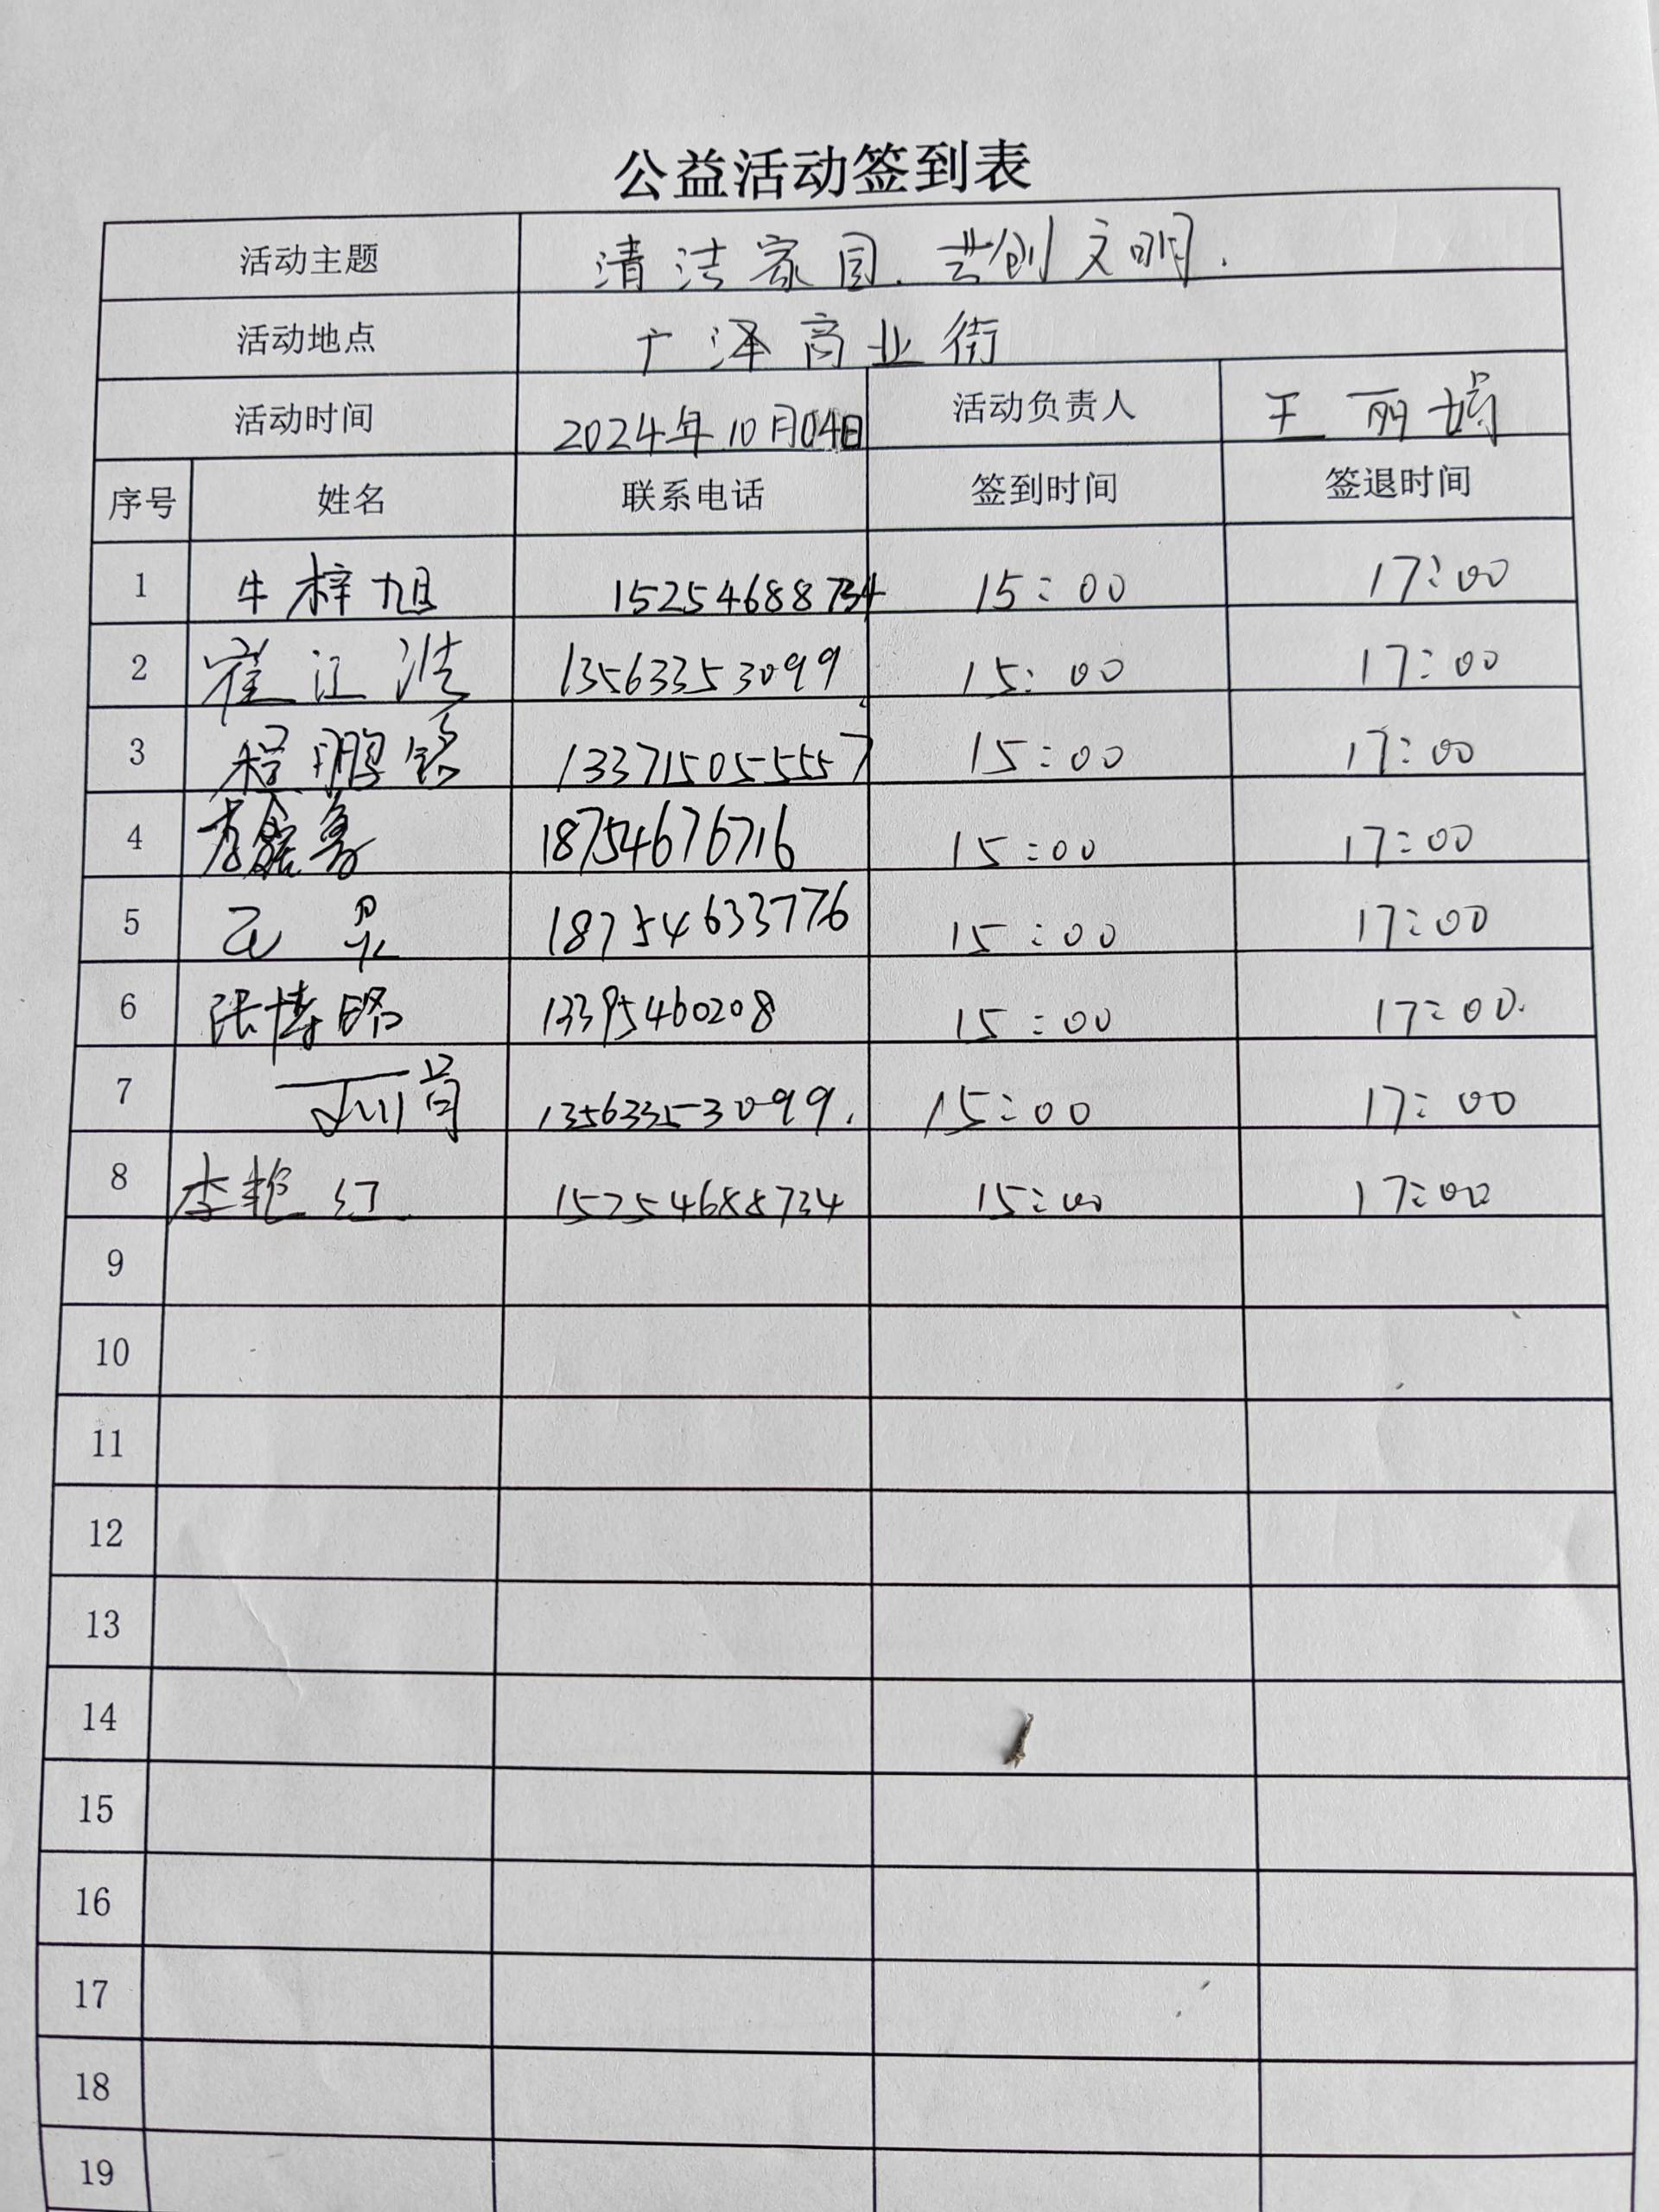 公益活动签到表
活动主题 清洁家园.共创文明.
活动地点 广泽商业街
活动时间 2024年10月04日 活动负责人 王丽娟
序号 姓名 联系电话 签到时间 签退时间
1 牛梓旭 15254688734 15:00 17:00
2 崔江浩 13563353099 15:00 17:00
3 程鹏铭 13371505557 15:00 17:00
4 18754676716 15:00 17:00
5 18754633776 15:00 17:00
6 张博铭 13395460208 15:00 17:00.
7 13563353099. 15:00 17:00
8 李艳红 15254688734 15:00 17:00
9
10
11
12
13
14
15
16
17
18
19